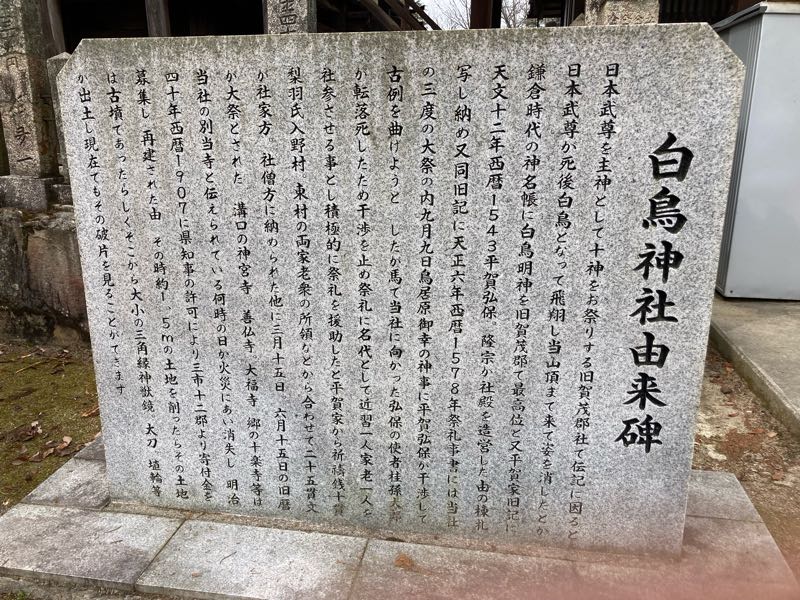 白鳥神社由来碑
日本武尊を主神として十神をお祭りする旧賀茂郡社て伝記に因ると
日本武尊が死後白鳥となって飛翔し当山頂まて来て姿を消したとか
鎌倉時代の神名帳に白鳥明神を旧賀茂郡て最高位と又平賀家旧記に
天文十二年西暦1543平賀弘保。隆宗か社殿を造営した由の棟札
写し納め又同旧記に天正六年西暦1578年祭礼事書には当社
の三度の大祭の内九月九日鳥居原御幸の神事に平賀弘保か干渉して
古例を曲けようと したか馬て当社に向かった弘保の使者桂孫太郎
が転落死したため干渉を止め祭礼に名代として近習一人家老一人を
社参させる事とし積極的に祭礼を援助したと平賀家から祈祷銭十貫
梨羽氏入野村 東村の両家老衆の所領などから合わせて二十五貫文
が社家方。社僧方に納められた他に三月十五日 六月十五日の旧暦
が大祭とされた 溝口の神宮寺 善仏寺 大福寺 郷の十楽寺等は
当社の別当寺と伝えられている何時の日か火災にあい消失し 明治
四十年西暦1907に県知事の許可により三市十二郡より寄付金を
募集し 再建された由 その時約1 5mの土地を削ったらその土地
は古墳であったらしくそこから大小の三角縁神獣鏡 太刀 埴輪等
か出土し現在てもその破片を見ることかてきます